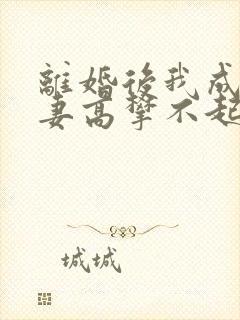 離婚後我成
妻高攀不起
城城